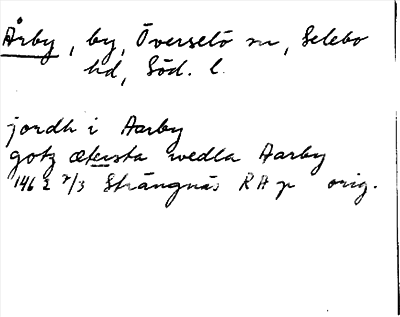 Årby, by, Överselö sn, Selebo
hd, Söd. l.
jordh i Aarby
gotz ækersta wedla Aarby
1462 2/3 Strängnäs RAp orig.